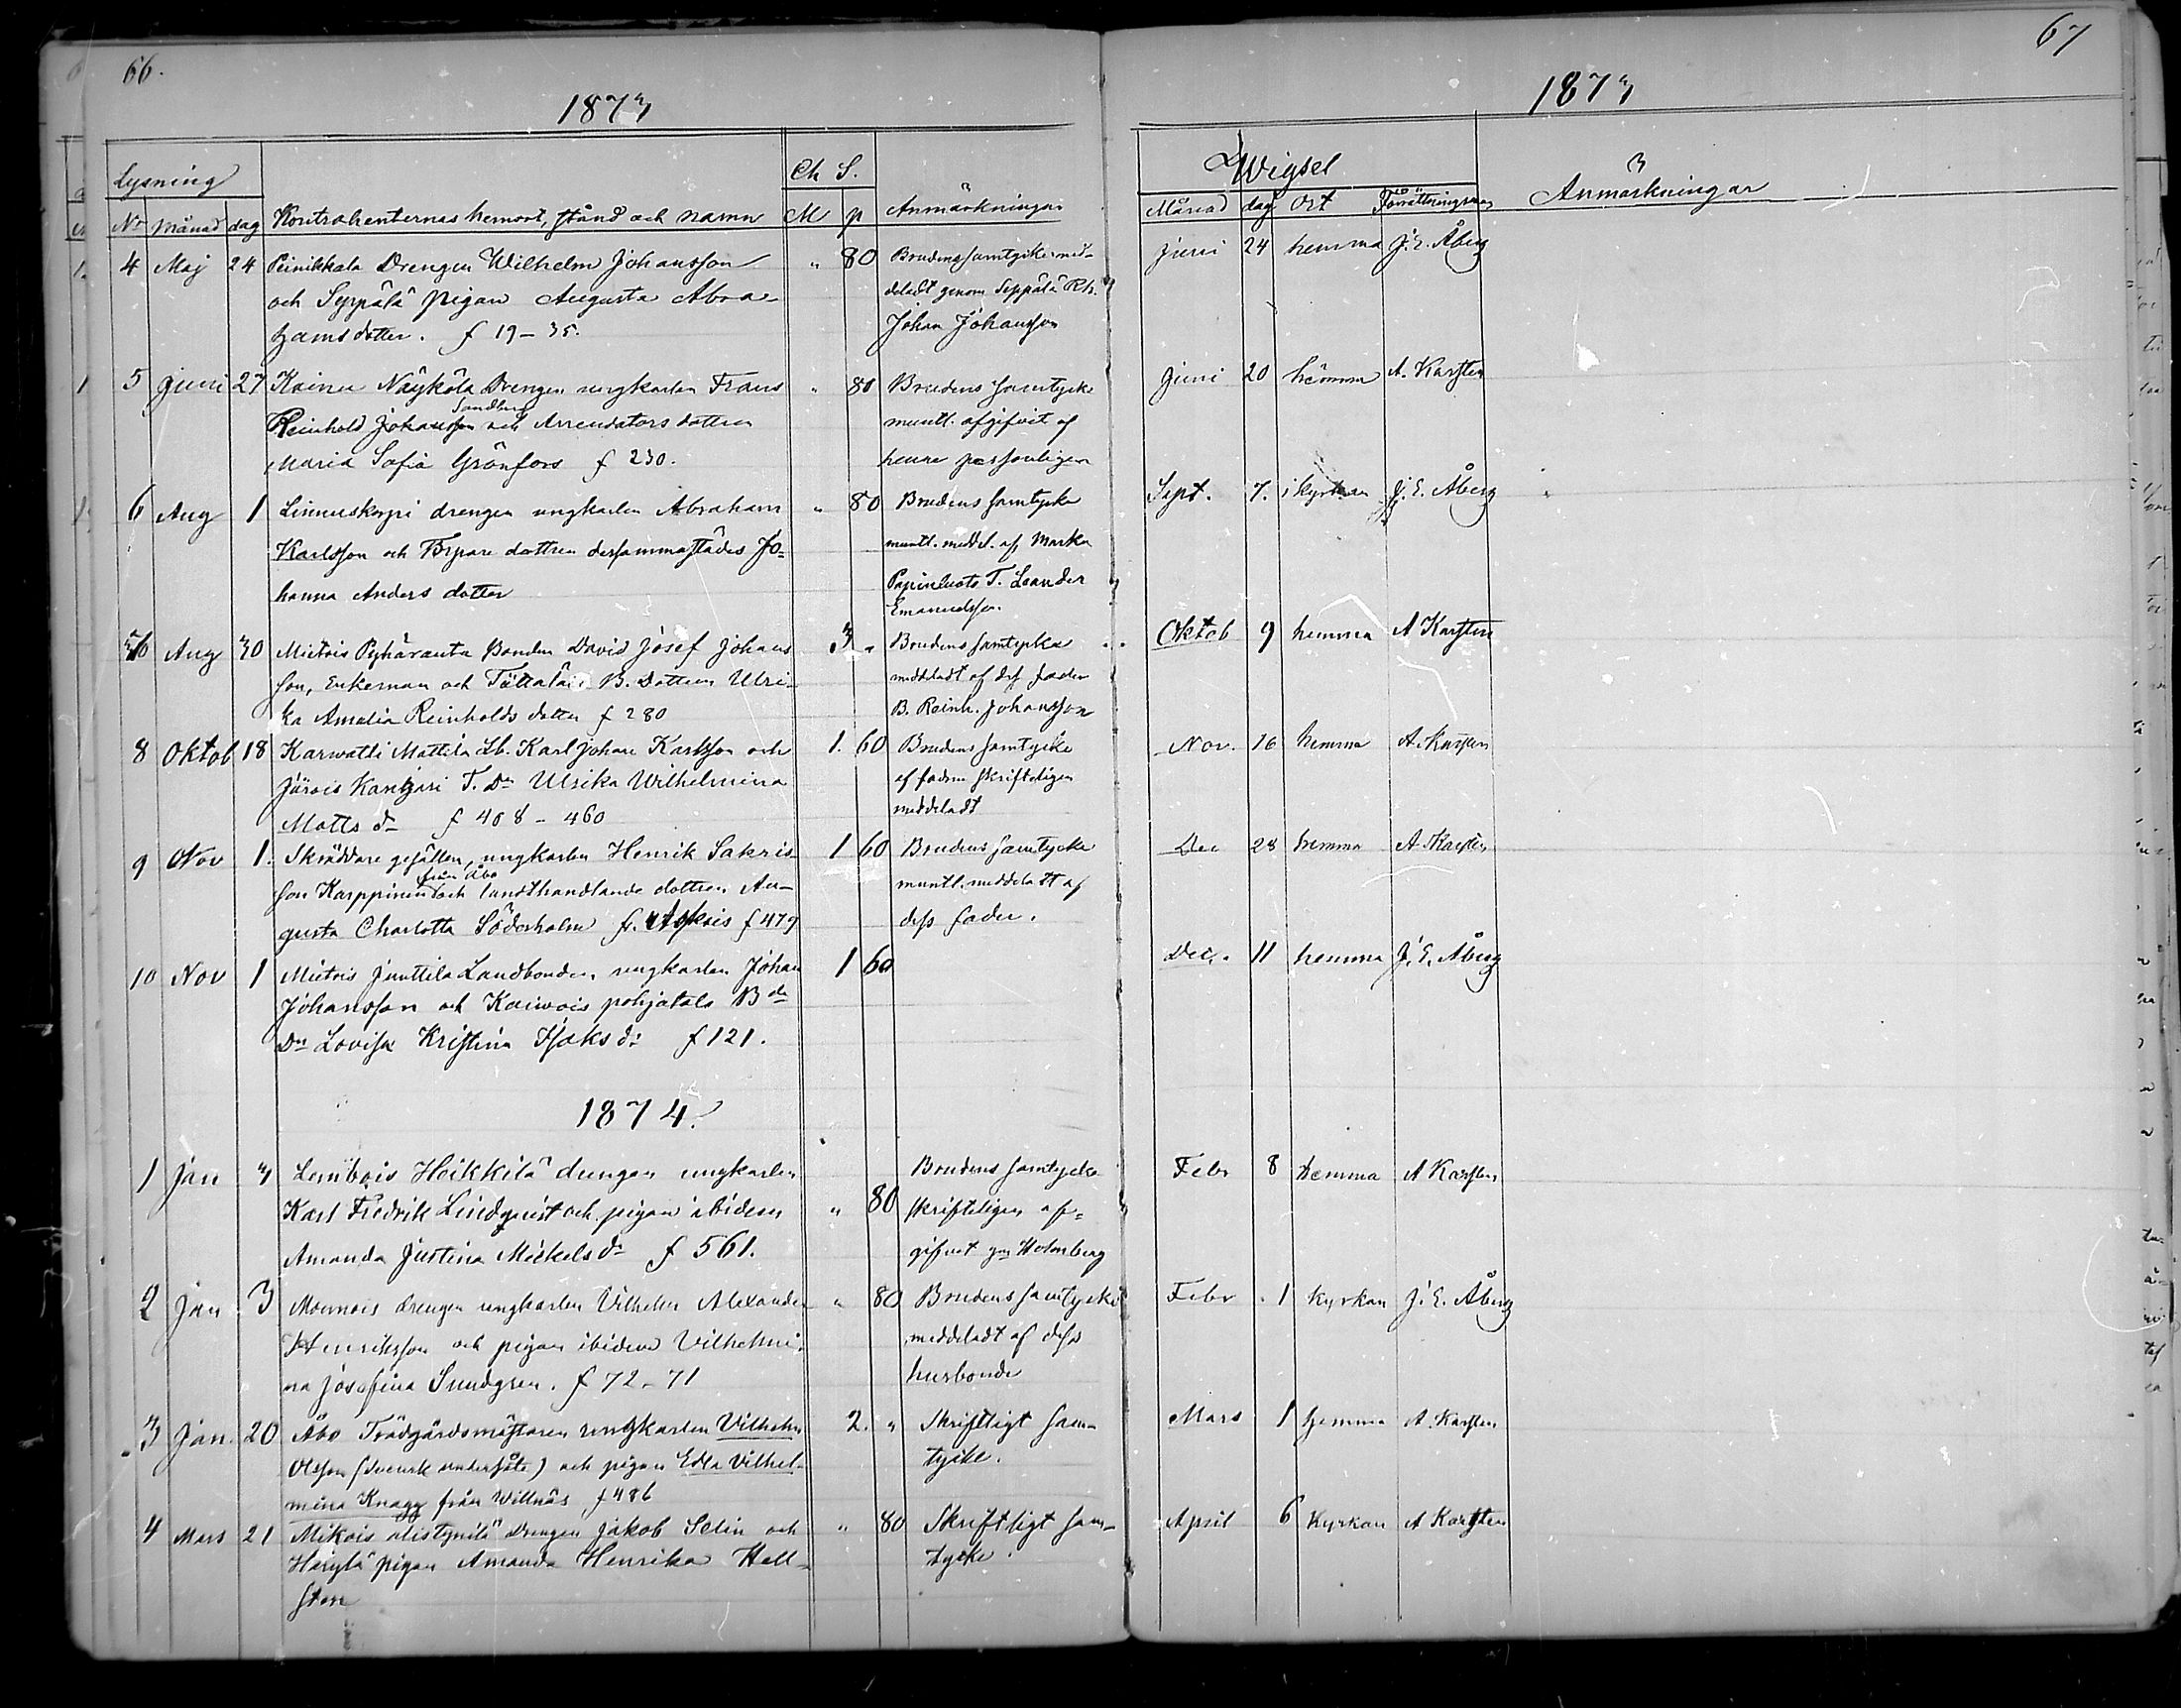 66.
1873
Lysning
Ch S.
No Månad dag Kontrahenternas hemort, stånd och namn M p Anmärkningar
4 Maj 24 Peinikkala Drengen Wilhelm Johansson " 80 Brudens samtycke med-
och Seppälä pigan Augusta Abra- deladt genom Seppälä
hams dotter. f 19-35. Johan Johansson
5 Juni 27 Kaina Näykölä Drengen ungkarlen Frans " 80 Brudens samtycke
Sandberg
Reinhold Johansson och Arrendators dottren muntl. afgifvit af
Maria Sofia Grönfors f 230. henne personligen
6 Aug 1 drengen ungkarlen Abraham " 80 Brudens samtycke
Karlsson och Torpare dottren dersammastädes Jo- muntl. medd. af
hanna Anders dotter T. Leander
Emanuelsson.
Aug 30 Mietois Pyhäranta Bonden David Josef Johans 3 " Brudens samtycke
son, Enkeman och B. Dottren Ulri- meddeladt af dess fader
ka Amalia Reinholds dotter f 280 B. Reinh. Johansson
8 Oktob 18 Karwatti Mattila Lb. Karl Johan Karlsson och 1. 60 Brudens samtycke
Järois T. Dn Ulrika Wilhelmina af fadren skriftligen
Matts dr f 468-460 meddeladt
9 Nov 1. Skräddare gesällen, ungkarlen Henrik Sakris- 1 60 Brudens samtycke
från Åbo
son Karppinen och landthandlande dottren Au- muntl. meddeladt af
gusta Charlotta Söderholm fr. Askais f 479 dess fader.
10 Nov 1 Mietois Junttila Landbonden ungkarlen Johan 1 60
Johansson och Kaiwois pohjatalo Bde
Dn Lovisa Kristina Isaks dr f 121.
1874.
1 Jan 3 Lembois Heikkilä drengen ungkarlen Brudens samtycke
Karl Fredrik Lindqvist och pigan ibidem " 80 skriftligen af-
Amanda Justina Mickels dr f 561. gifvet gm Holmberg
2 Jan 3 Monnois drengen ungkarlen Vilhelm Alexander " 80 Brudens samtycke
Henriksson och pigan ibidem Vilhelmi- meddeladt af dess
na Josefina Sundgren. f 72-71 husbonde
3 Jan. 20 Åbo Trädgårdsmästaren ungkarlen Vilhelm 2. " Skriftligt sam-
Olsson (svensk undersåte) och pigan Edla Vilhel- tycke.
mina Knagg från Willnäs f 486
4 Mars 21 Mikois Alistynilä Drengen Jakob Selin och " 80 Skriftligt sam-
Härylä pigan Amanda Henrika Hell- tycke.
sten
67
1873
Wigsel
Månad dag ort Förrättningsman Anmärkningar
Juni 24 hemma J. E. Åberg
Juni 20 hemma A. Karsten
Sept. 7. i kyrkan J. E. Åberg
Oktob 9 hemma A Karsten
Nov. 16 hemma A. Karsten
Dec 28 hemma A Karsten
Dec. 11 hemma J. E. Åberg
Febr 8 hemma A Karsten
Febr 1 kyrkan J. E. Åberg
Mars 1 hemma A. Karsten
April 6 Kyrkan A Karsten